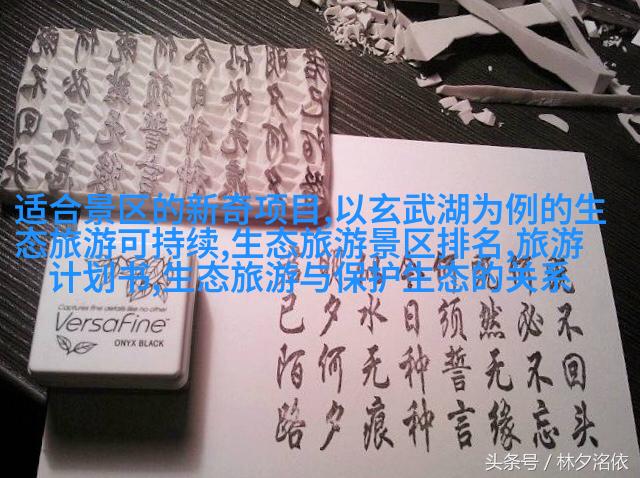 适合景区的新奇项目,以玄武湖为例的生
态旅游可持续,生态旅游景区排名,旅游
计划书,生态旅游与保护生态的关系
既不回头
何必不忘
既然无缘
何须誓言
今日种种
似水无痕
明夕何夕
君已陌路
Captures fine details like no other
VersaFine
ONYX BLACK
头条号／林夕洺依